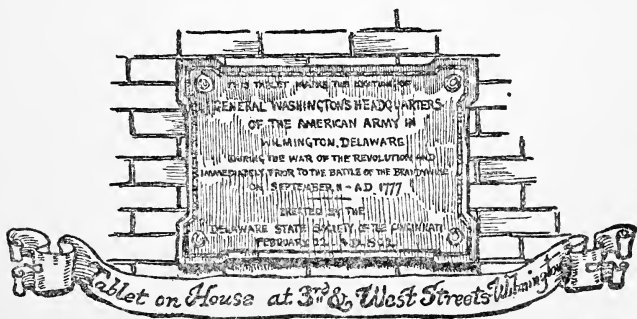 THIS TABLET MARKS THE LOCATION OF
GENERAL WASHINGTON'S HEADQUARTERS
OF THE AMERICAN ARMY IN
WILMINGTON, DELAWARE
DURING THE WAR OF THE REVOLUTION AND
IMMEDIATELY PRIOR TO THE BATTLE OF THE BRANDYWINE
ON SEPTEMBER 11 - A.D. 1777
ERECTED BY THE
DELAWARE STATE SOCIETY OF THE CINCINNATI
FEBRUARY 22
Tablet on House at 3rd & West Streets Wilmington